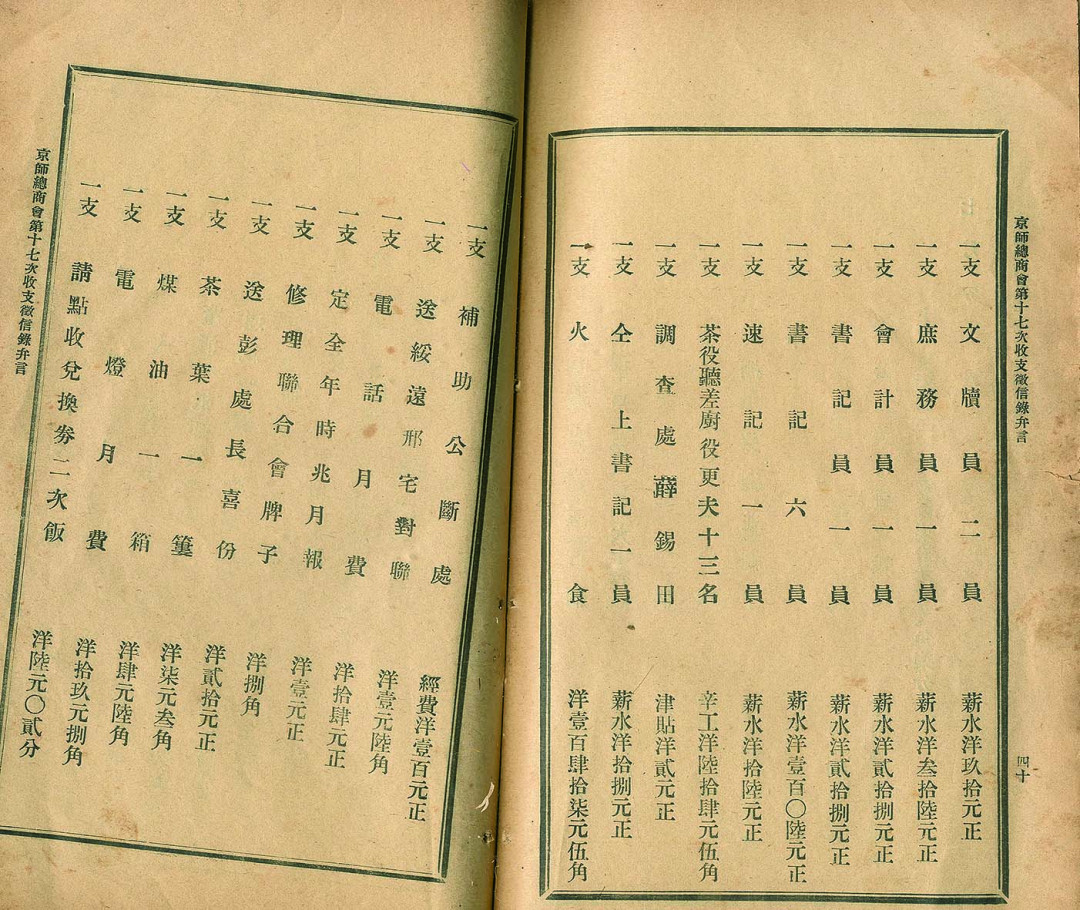 京師總商會第十七次收支徵信錄弁言
四十
一支 文牘員二員 薪水洋玖拾元正
一支 庶務員一員 薪水洋叁拾陸元正
一支 會計員一員 薪水洋貳拾捌元正
一支 書記員一員 薪水洋貳拾捌元正
一支 書記六員 薪水洋壹百〇陸元正
一支 速記一員 薪水洋拾陸元正
一支 茶役聽差廚役更夫十三名 辛工洋陸拾肆元伍角
一支 調查處薛錫田 津貼洋貳元正
一支 仝上書記一員 薪水洋拾捌元正
一支 火食 洋壹百肆拾柒元伍角
一支 補助公斷處 經費洋壹百元正
一支 送綏遠邢宅對聯 洋壹元陸角
一支 電話月費 洋拾肆元正
一支 定全年時兆月報 洋壹元正
一支 修理聯合會牌子 洋捌角
一支 送彭處長喜份 洋貳拾元正
一支 茶葉一簍 洋柒元叁角
一支 煤油一箱 洋肆元陸角
一支 電燈月費 洋拾玖元捌角
一支 請點收兌換券二次飯 洋陸元〇貳分
京師總商會第十七次收支徵信錄弁言